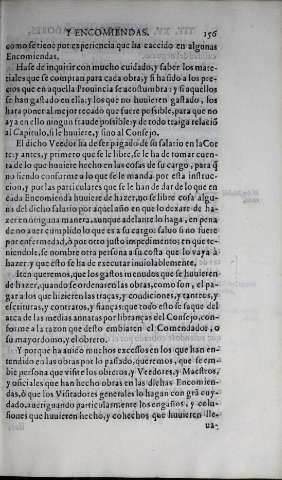 Y ENCOMIENDAS. 156
como se tiene por experiencia que ha caecido en algunas
Encomiendas.
Hase de inquirir con mucho cuidado, y saber los mate-
riales que se compran para cada obra, y si ha sido a los pre-
cios que en aquella Prouincia se acostumbra: y si aquellos
se han gastado en ella: y los que no huuieren gastado, los
hara poner al mejor recado que fuere possible, para que no
aya en ello ningun fraude possible: y de todo traiga relaciõ
al Capitulo, si le huuiere, y sino al Consejo.
El dicho Veedor ha de ser pagado de su salario en la Cor
te: y antes, y primero que se le libre, se le ha de tomar cuen-
ta de lo que huuiere hecho en las cosas de su cargo, para q̃
no siendo conforme a lo que se le manda por esta instruc-
cion, y por las particulares que se le han de dar de lo que en
cada Encomienda huuiere de hazer, no se libre cosa algu-
na del dicho salario por aquel año en que lo dexare de ha-
zer en ninguna manera, aunque adelante lo haga, en pena
de no auer cumplido lo que es a su cargo: saluo si no fuere
por enfermedad, ò por otro justo impedimento: en que te-
niendole, se nombre otra persona a su costa que lo vaya à
hazer: y que esto se ha de executar inuiolablemente.
Iten queremos, que los gastos menudos que se huuieren
de hazer, quando se ordenaren las obras, como son, el pa-
gar a los que hizieren las traças, y condiciones, y tanteos, y
escrituras, y contratos, y fianças: que todo esto se saque del
arca de las medias annatas por libranças del Consejo, con-
forme a la razon que desto embiaren el Comendador, o
su mayordomo, y el obrero.
Y porque ha auido muchos excessos en los que han en-
tendido en las obras por lo passado, queremos, que se em-
bie persona que visite los obreros, y Veedores, y Maestros,
y oficiales que han hecho obras en las dichas Encomien-
das, ò que los Visitadores generales lo hagan con grã cuy-
dado, aueriguando particularmente los engaños, y colu-
siones que huuieren hecho, y cohechos que huuieren lle-
ua-